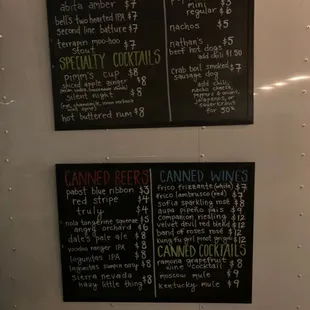 abita amber $7
bell's two hearted IPA $7
second line batture $7
terrapin moo-hoo $7
stout
SPECIALTY COCKTAILS
pimm's cup $8
spiced apple amber $8
silent night $8
hot buttered rum $8
mini 3
regular $6
nachos $5
nathan's $5
beef hot dogs
add chili $1.50
crab boil smoked $7
sausage dog
add chili,
nacho cheese,
peppers & onions,
jalapenos, or
sauerkraut
for 50¢
CANNED BEERS
pabst blue ribbon $3
red stripe $4
truly $4
nola tangerine squeeze $5
angry orchard $6
dale's pale ale $8
voodoo ranger IPA $8
lagunitas IPA $8
lagunitas sumpin easy $8
sierra nevada $8
hazy little thing
CANNED WINES
frico frizzante (white) $7
frico lambrusco (red) $7
sofia sparkling rose $8
gaspa pipeño pais $9
companion riesling $12
velvet devil red blend $12
band of roses rosé $12
kung fu girl pinot grigio $12
CANNED COCKTAILS
ramona grapefruit $8
wine cocktail
moscow mule $9
kentucky mule $9